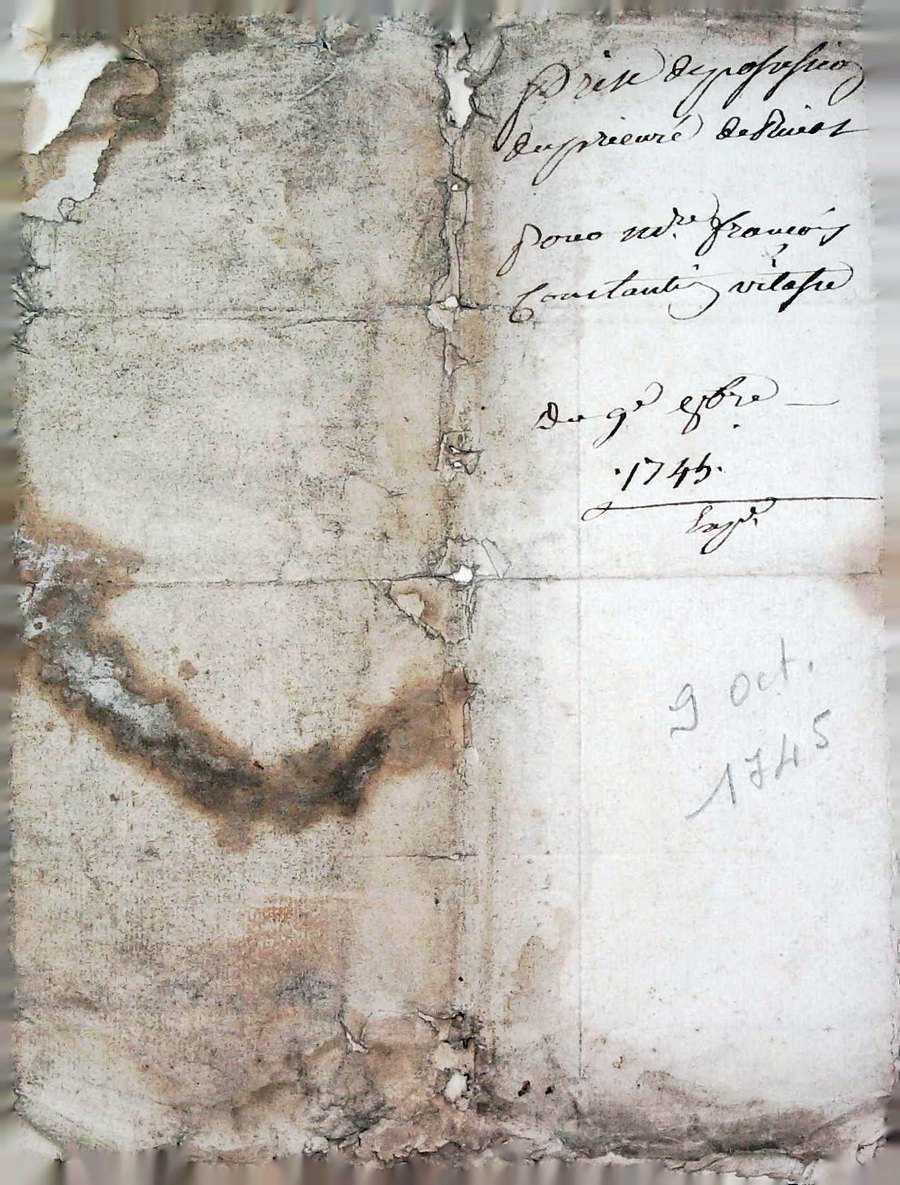 Prise de possession
du prieuré de
pour mre françois
Constantin vitasse
du 9e 8bre
1745.
Expé
9 Oct.
1745